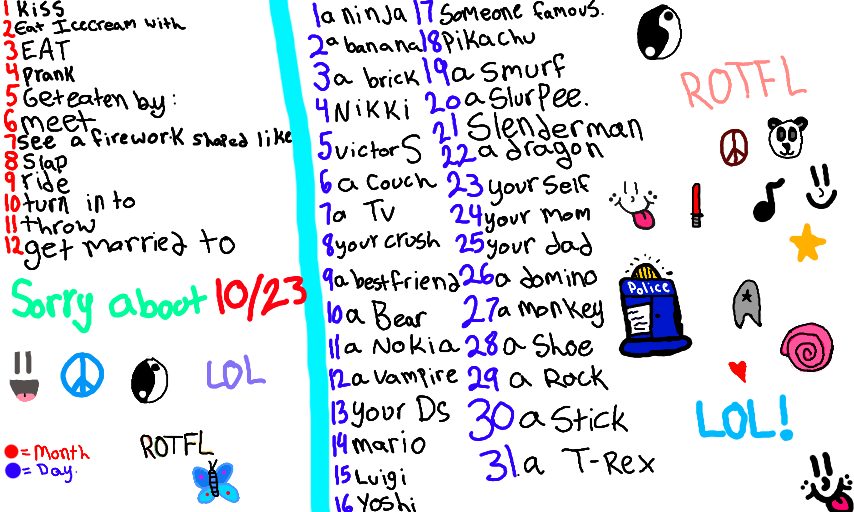 1 Kiss
2 Eat Icecream with
3 EAT
4 Prank
5 Get eaten by:
6 meet
7 see a firework shaped like
8 Slap
9 ride
10 turn in to
11 throw
12 get married to
Sorry about 10/23
LOL
= Month
= Day.
ROTFL
1 a ninja
2 a banana
3 a brick
4 Nikki
5 victorS
6 a couch
7 a TV
8 your crush
9 a bestfriend
10 a Bear
11 a NoKia
12 a vampire
13 your Ds
14 mario
15 Luigi
16 Yoshi
17 Someone famous.
18 Pikachu
19 a Smurf
20 a Slurpee.
21 Slenderman
22 a dragon
23 yourself
24 your mom
25 your dad
26 a domino
27 a monkey
28 a Shoe
29 a Rock
30 a Stick
31 a T-Rex
ROTFL
Police
LOL!